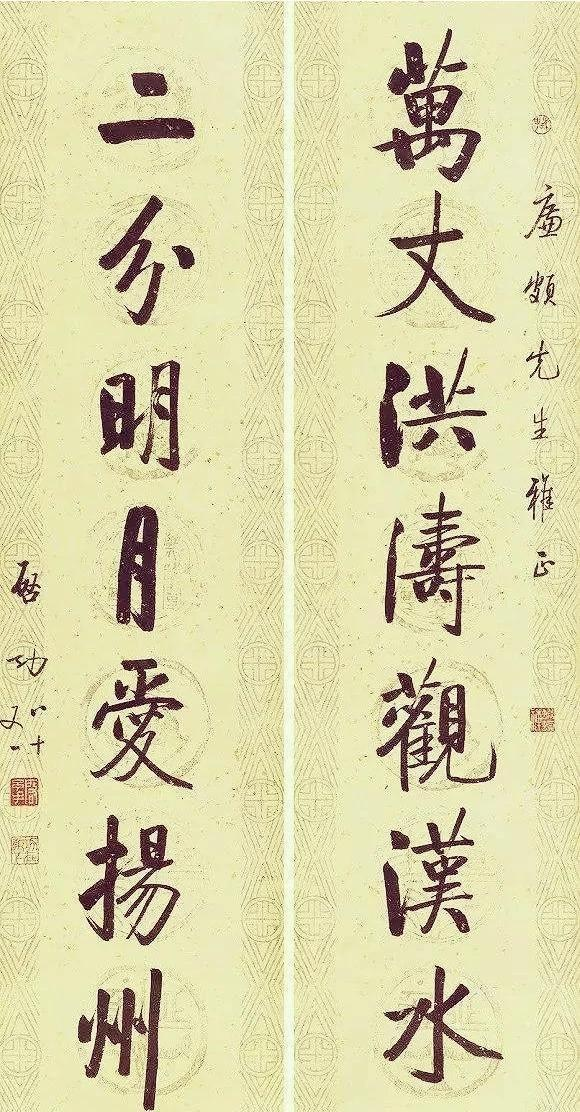 廉頗先生雅正
萬丈洪濤觀漢水
二分明月愛揚州
啟功
八十
又一